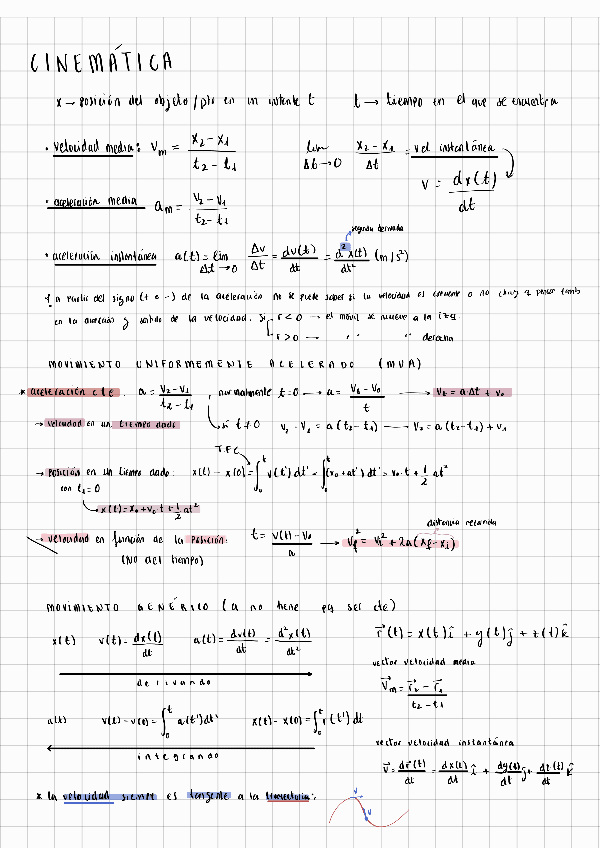 CINEMÁTICA
x → posición del objeto/pto en un instante t t → tiempo en el que se encuentra
· velocidad media: Vm = x2 - x1 / t2 - t1 lim Δt→0 x2 - x1 / Δt = vel instantánea
v = dx(t) / dt
· aceleración media am = v2 - v1 / t2 - t1
segunda derivada
· aceleración instantánea a(t) = lim Δt→0 Δv / Δt = dv(t) / dt = d²x(t) / dt² (m/s²)
a partir del signo (+ o -) de la aceleración no se puede saber si la velocidad es creciente o no
en la dirección y sentido de la velocidad. Si v < 0 → el móvil se mueve a la izq.
v > 0 → " " derecha
MOVIMIENTO UNIFORMEMENTE ACELERADO (MUA)
* aceleración cte. a = v2 - v1 / t2 - t1 , normalmente t=0 → a = vt - v0 / t → vt = a·Δt + v0
→ velocidad en un tiempo dado si t ≠ 0 v2 - v1 = a(t2 - t1) → v2 = a(t2 - t1) + v1
T.F.C
→ posición en un tiempo dado: x(t) - x(0) = ∫₀ᵗ v(t') dt' = ∫₀ᵗ (v0 + at') dt' = v0·t + 1/2 at²
con t1 = 0
x(t) = x0 + v0·t + 1/2 at²
distancia recorrida
→ velocidad en función de la posición: t = v(t) - v0 / a → vf² = vi² + 2a(xf - xi)
(NO del tiempo)
MOVIMIENTO GENÉRICO (a no tiene pq ser cte)
x(t) v(t) = dx(t) / dt a(t) = dv(t) / dt = d²x(t) / dt² r⃗(t) = x(t)î + y(t)ĵ + z(t)k̂
derivando
vector velocidad media
v⃗m = r⃗2 - r⃗1 / t2 - t1
a(t) v(t) - v(0) = ∫₀ᵗ a(t') dt' x(t) - x(0) = ∫₀ᵗ v(t') dt
integrando
vector velocidad instantánea
v⃗ = dr⃗(t) / dt = dx(t) / dt î + dy(t) / dt ĵ + dz(t) / dt k̂
* la velocidad siempre es tangente a la trayectoria:
v
v